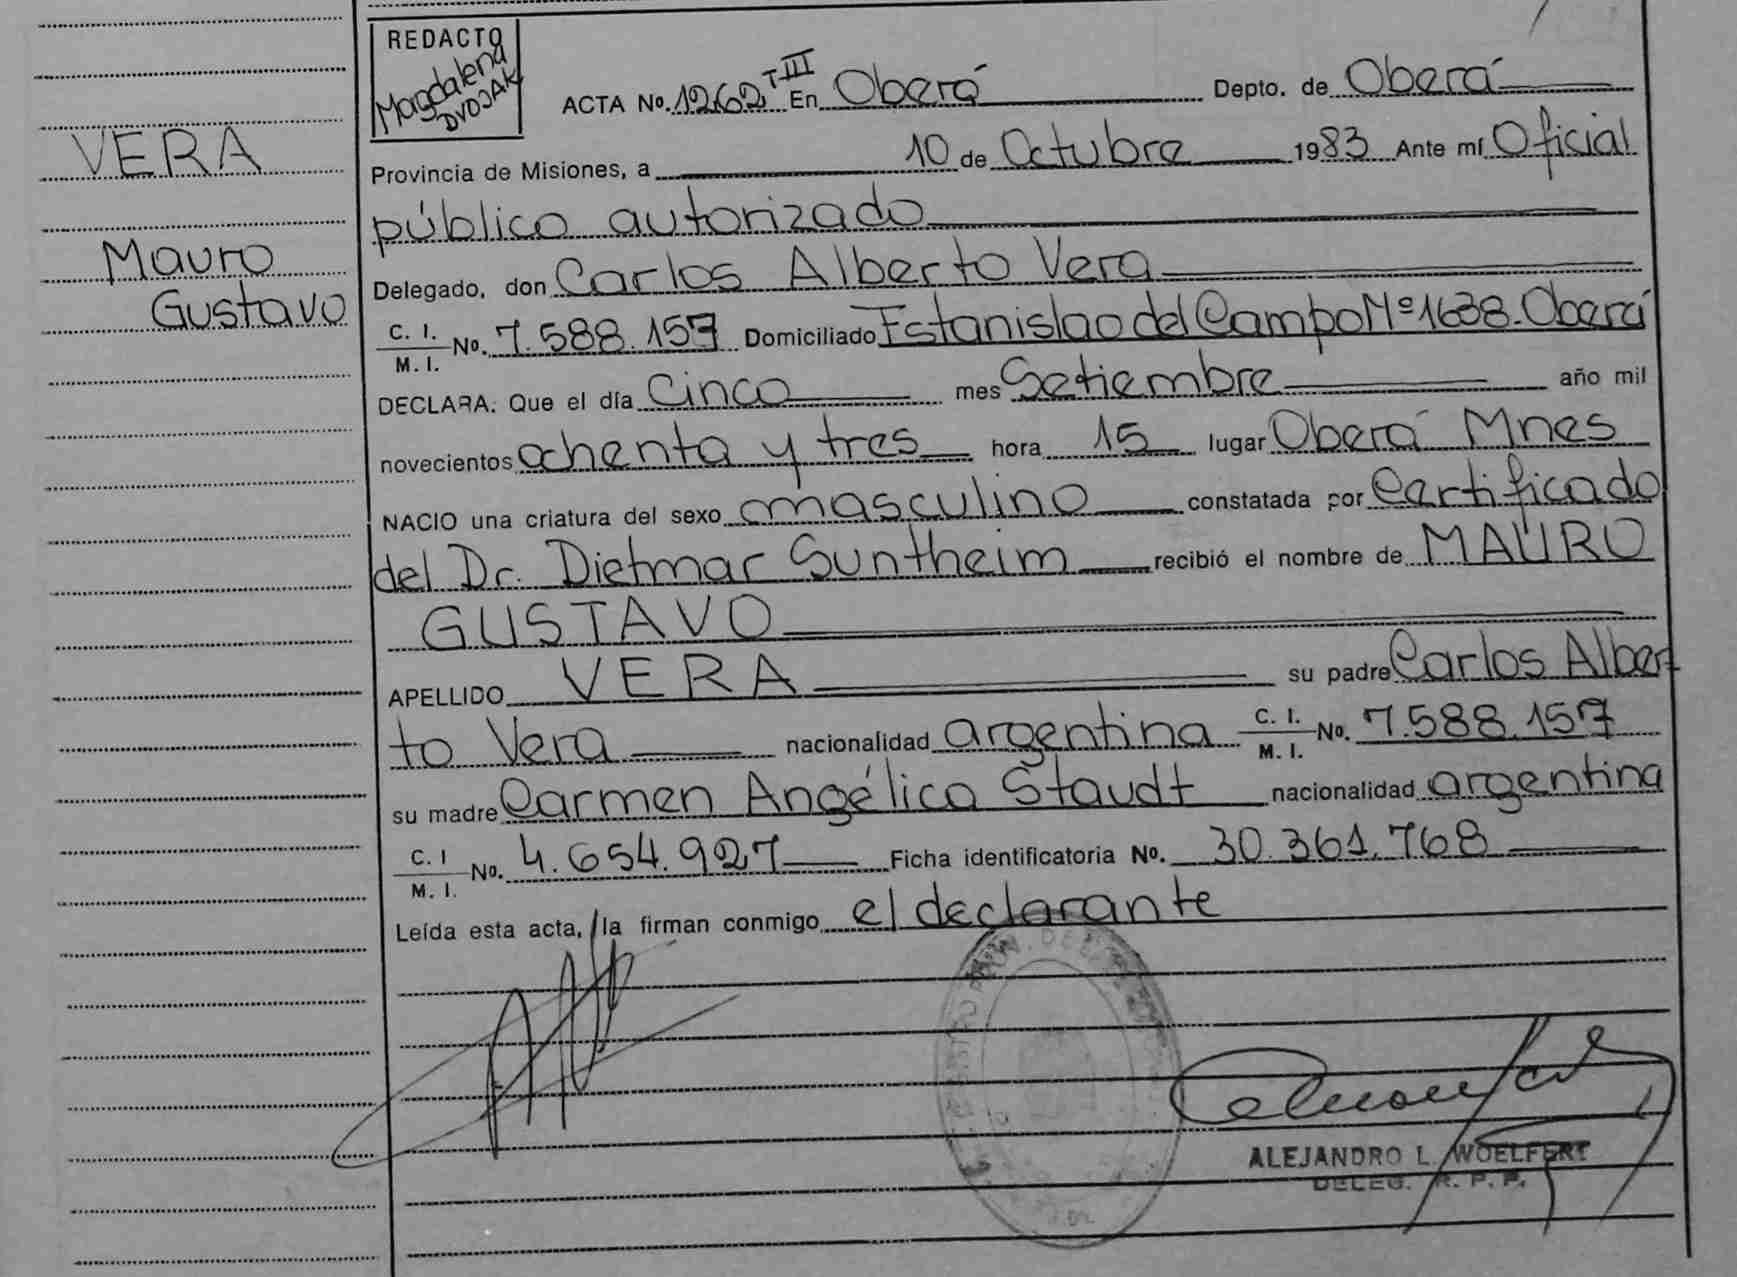 VERA
Mauro
Gustavo
REDACTO
Magdalena
DVOJAK
ACTA No. 1262 T III En Oberá Depto. de Oberá
Provincia de Misiones, a 10 de Octubre 1983 Ante mí Oficial
público autorizado
Delegado, don Carlos Alberto Vera
C. I. / M. I. No. 7.588.157 Domiciliado Estanislao del Campo Nº 1638. Oberá
DECLARA: Que el día Cinco mes Setiembre año mil
novecientos ochenta y tres hora 15 lugar Oberá Mnes
NACIO una criatura del sexo masculino constatada por Certificado
del Dr. Dietmar Suntheim recibió el nombre de MAURO
GUSTAVO
APELLIDO VERA su padre Carlos Alber
to Vera nacionalidad argentina C. I. / M. I. No. 7.588.157
su madre Carmen Angélica Staudt nacionalidad argentina
C. I / M. I. No. 4.654.927 Ficha identificatoria No. 30.361.768
Leída esta acta, la firman conmigo el declarante
ALEJANDRO L. WOELFERT
DELEG. R. P. P.